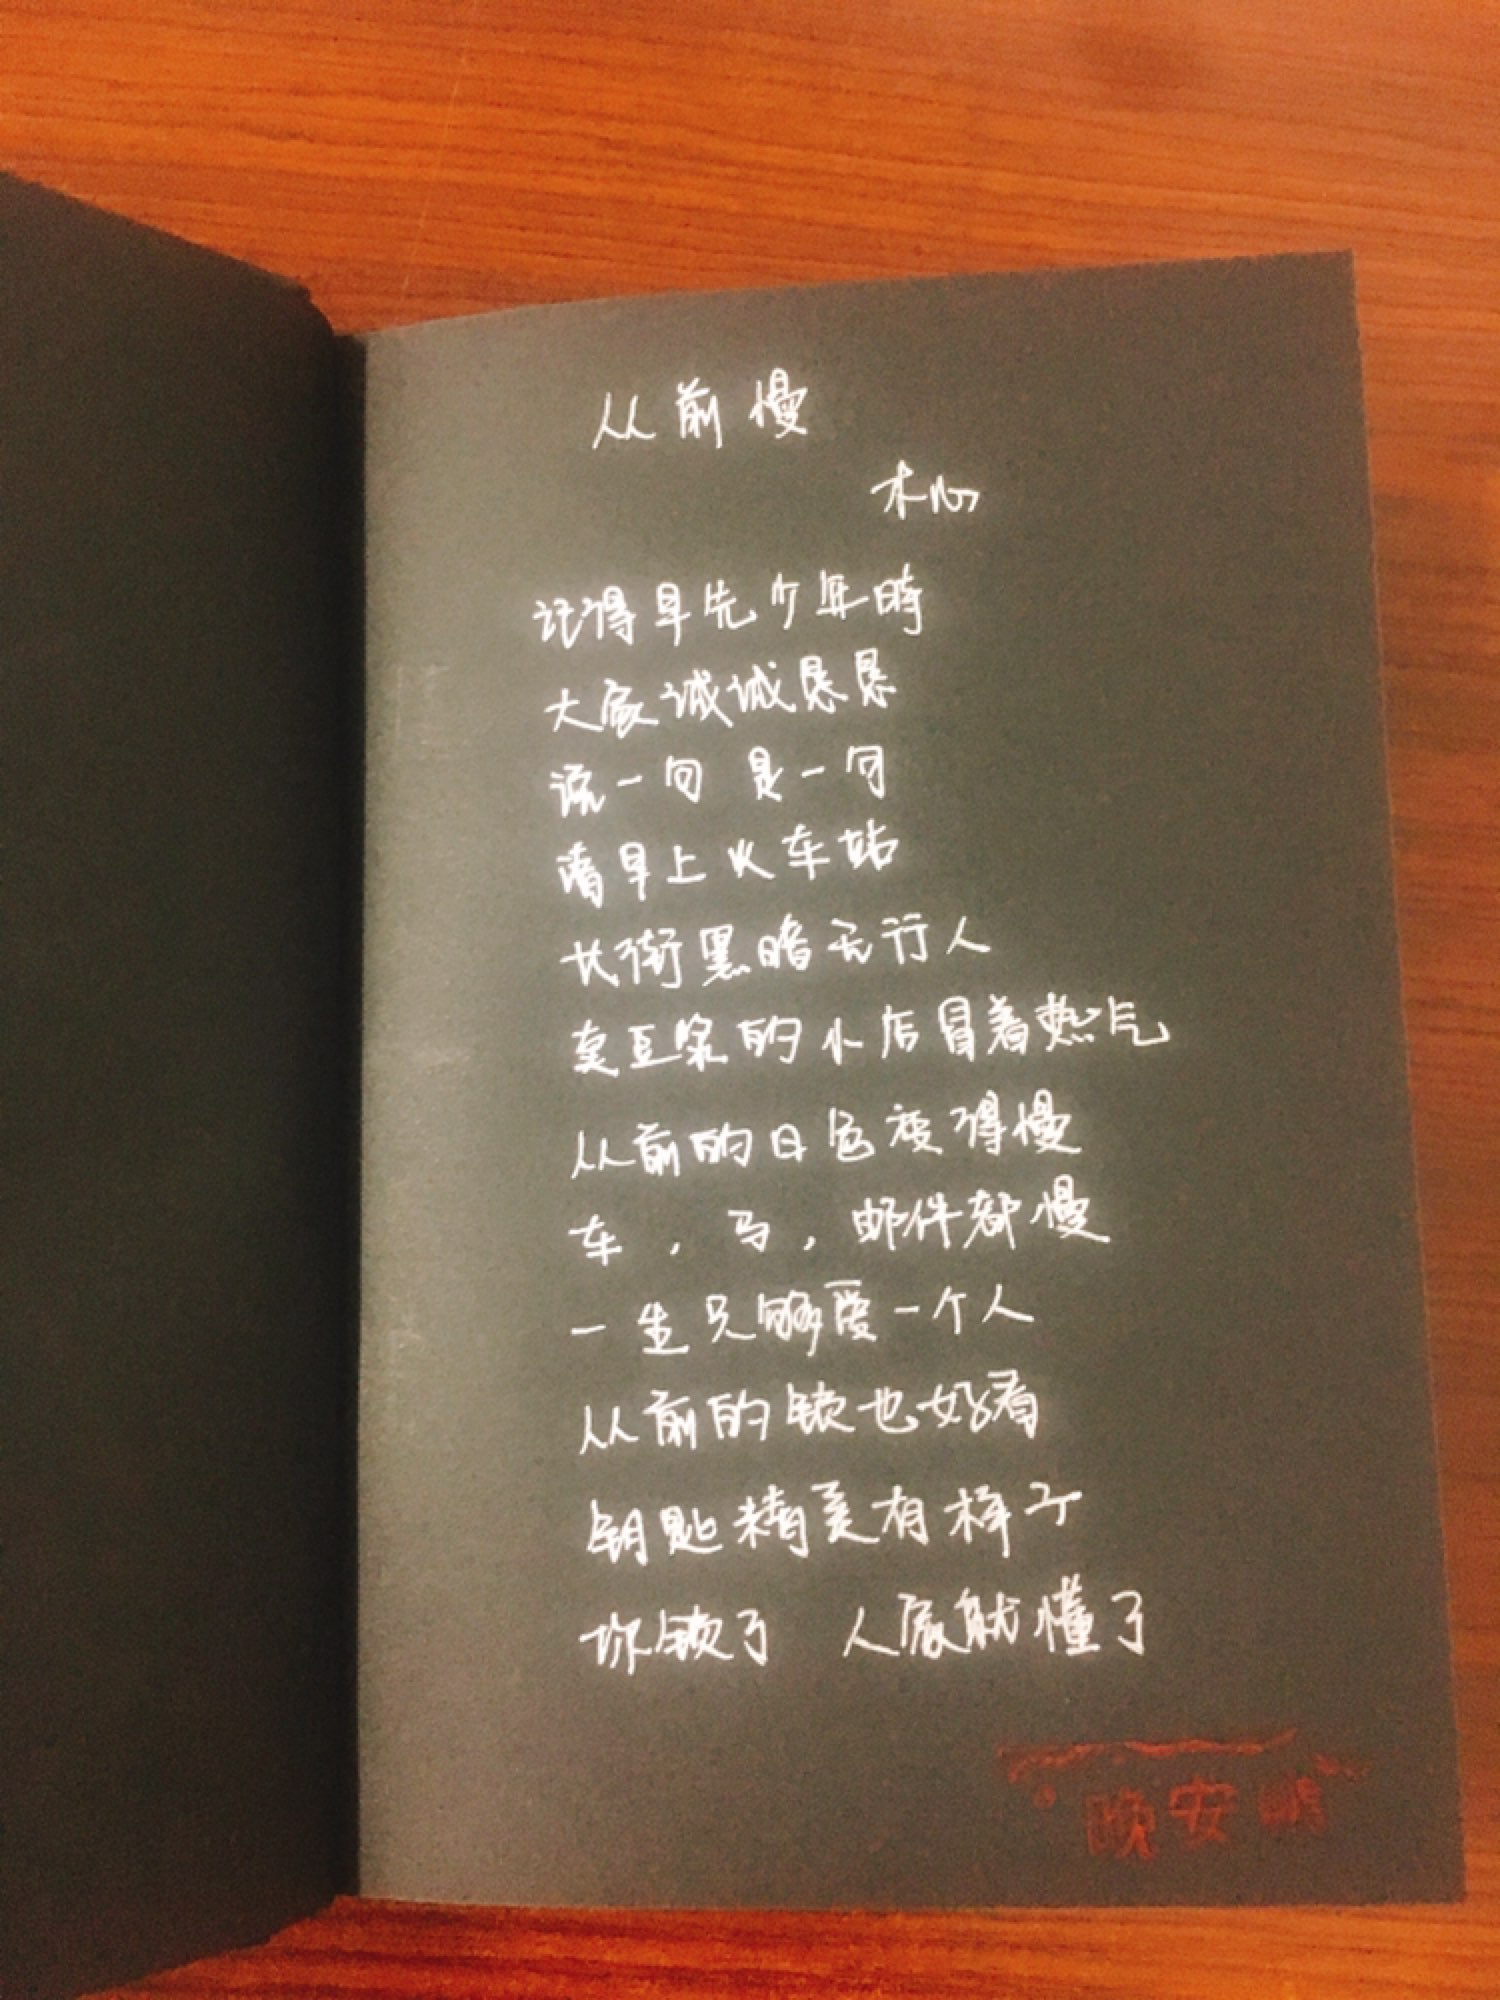 从前慢
木心
记得早先少年時
大家诚诚恳恳
说一句 是一句
清早上火车站
长街黑暗无行人
卖豆浆的小店冒着热气
从前的日色变得慢
车，马，邮件都慢
一生只够爱一个人
从前的锁也好看
钥匙精美有样子
你锁了 人家就懂了
晚安